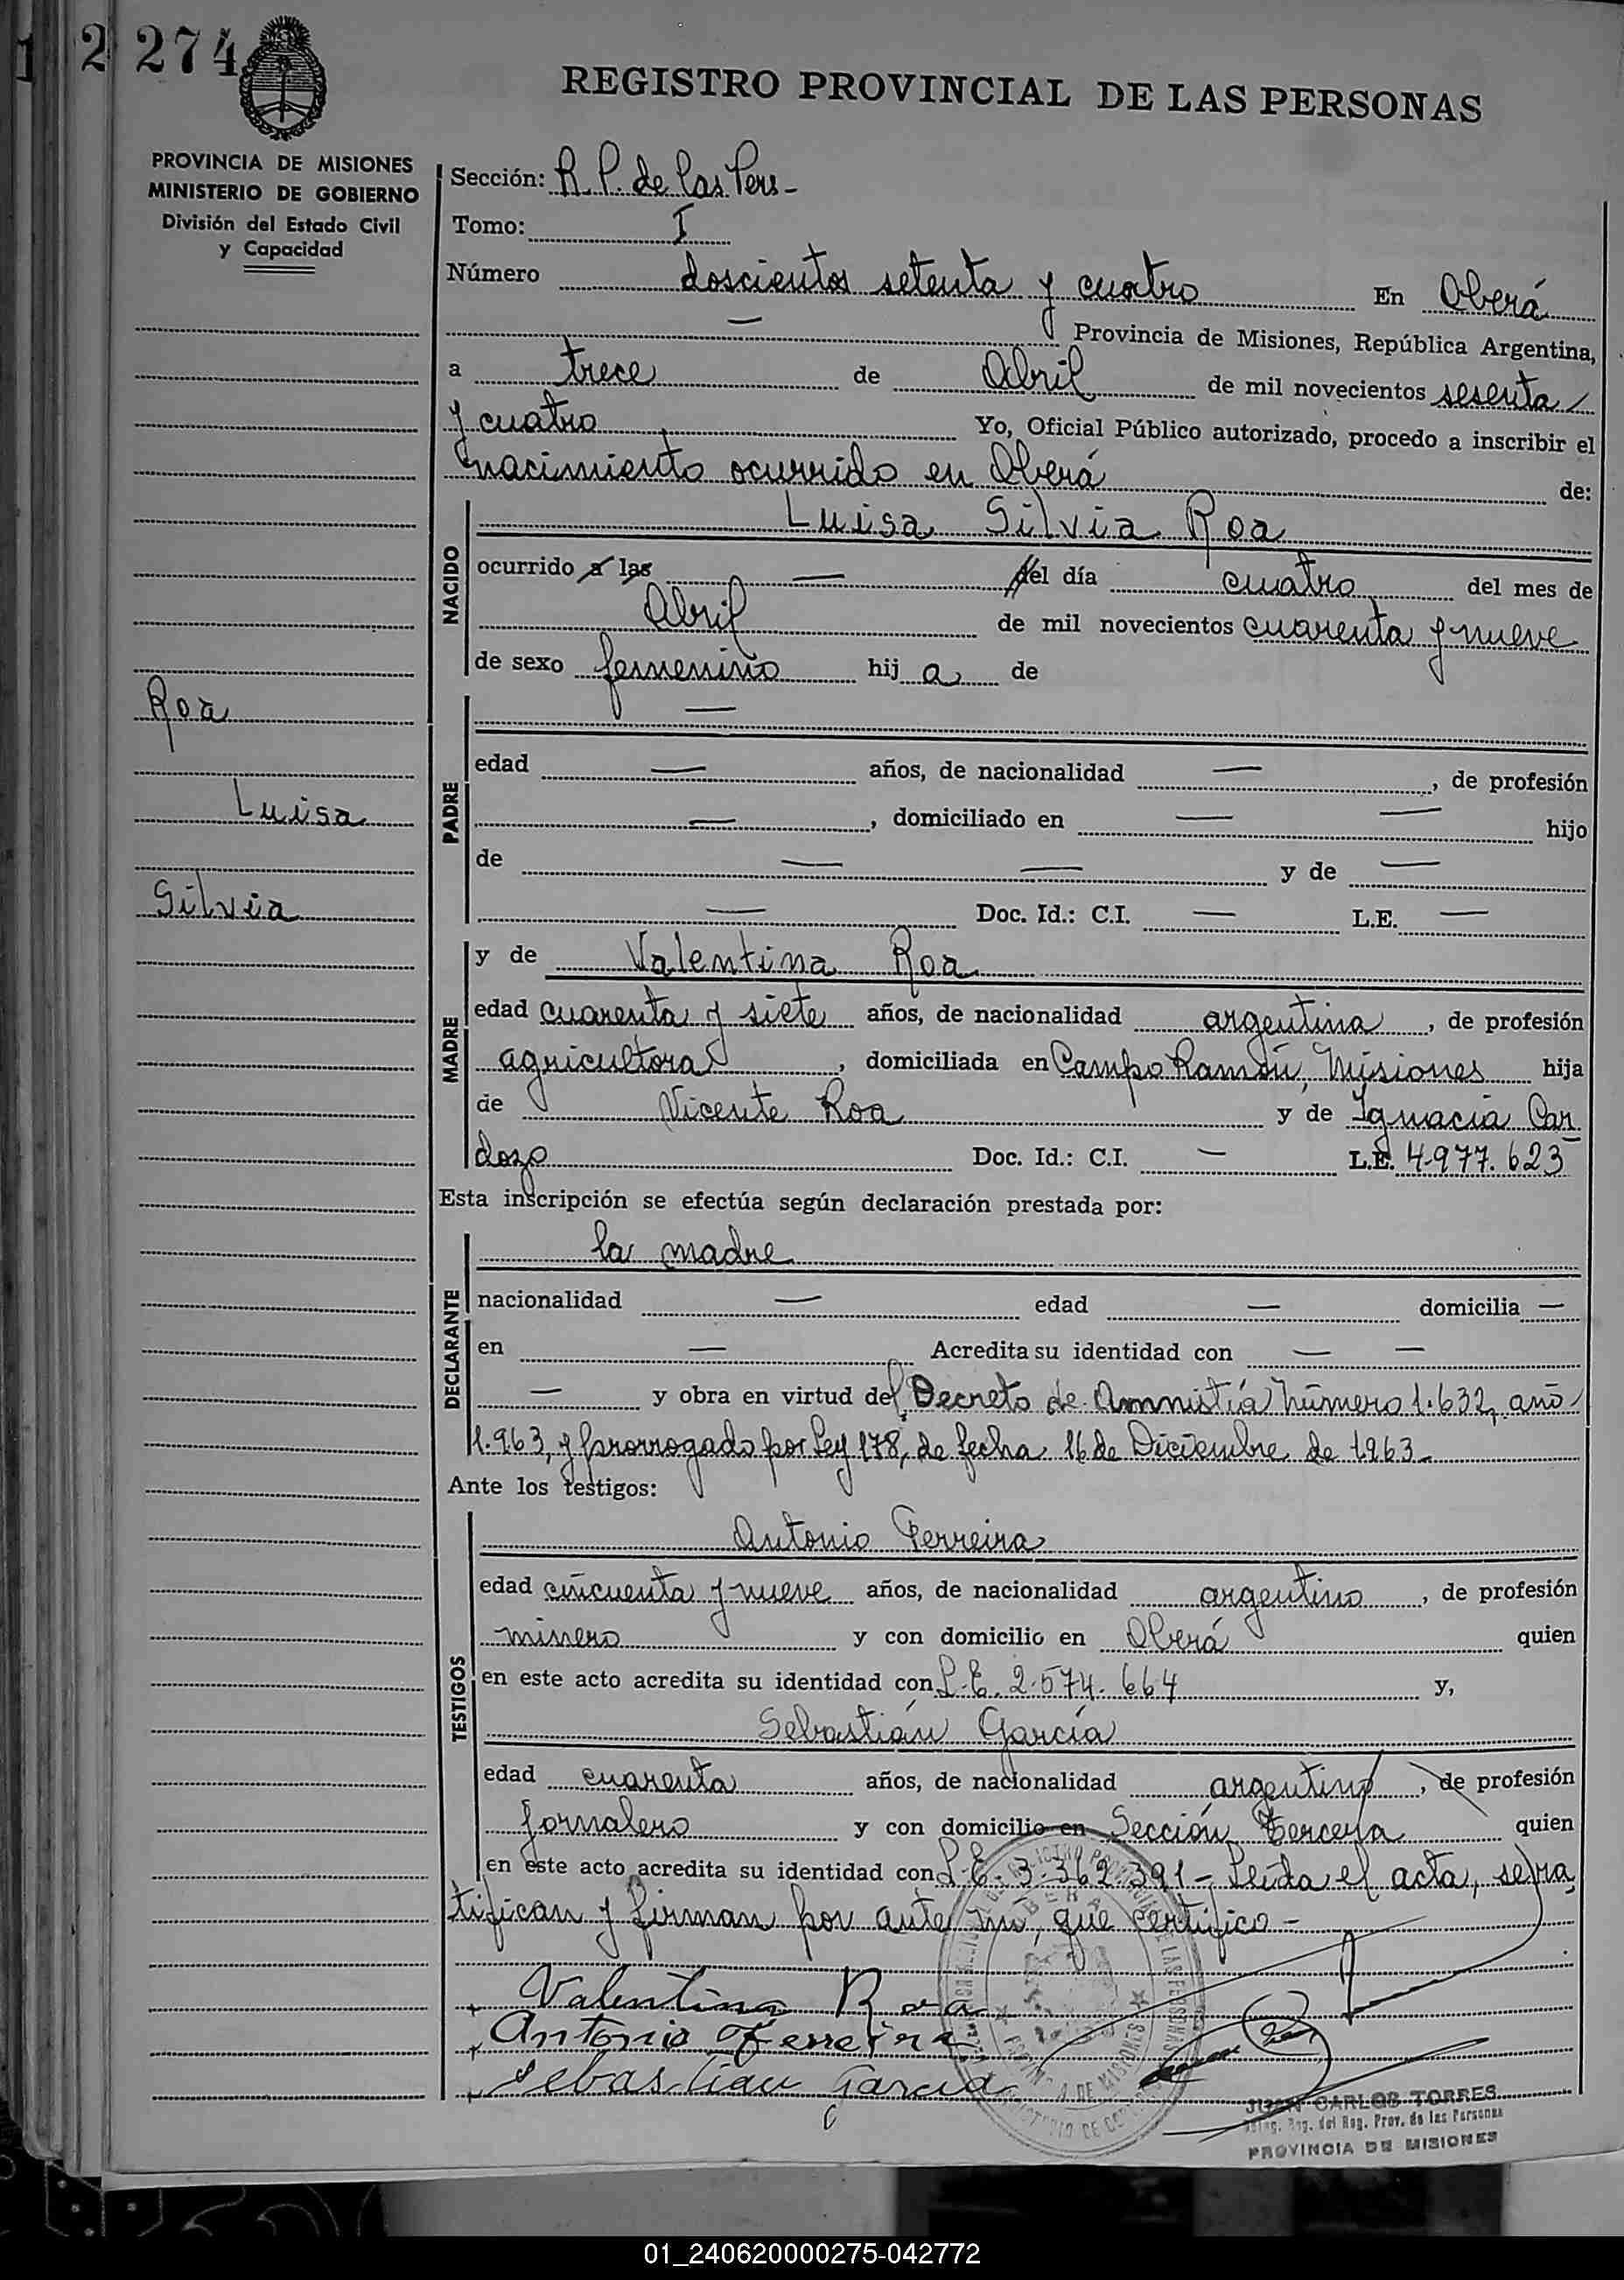 1 2 274
REGISTRO PROVINCIAL DE LAS PERSONAS
PROVINCIA DE MISIONES
MINISTERIO DE GOBIERNO
División del Estado Civil
y Capacidad
Roa
Luisa
Silvia
Sección: R. P. de las Pers-
Tomo: I
Número doscientos setenta y cuatro En Oberá
— Provincia de Misiones, República Argentina,
a trece de Abril de mil novecientos sesenta
y cuatro Yo, Oficial Público autorizado, procedo a inscribir el
nacimiento ocurrido en Oberá de:
NACIDO
Luisa Silvia Roa
ocurrido a las — del día cuatro del mes de
Abril de mil novecientos cuarenta y nueve
de sexo femenino hij a de
PADRE
—
edad — años, de nacionalidad —, de profesión
—, domiciliado en — — hijo
de — — y de —
— Doc. Id.: C.I. — L.E. —
MADRE
y de Valentina Roa
edad cuarenta y siete años, de nacionalidad argentina, de profesión
agricultora, domiciliada en Campo Ramón, Misiones hija
de Vicente Roa y de Ignacia Car
dozo Doc. Id.: C.I. — L.E. 4.977.623
Esta inscripción se efectúa según declaración prestada por:
DECLARANTE
la madre
nacionalidad — edad — domicilia —
en — Acredita su identidad con — —
— y obra en virtud del Decreto de Amnistía número 1.632, año
1.963, y prorrogado por Ley 178, de fecha 16 de Diciembre de 1963.
Ante los testigos:
TESTIGOS
Antonio Ferreira
edad cincuenta y nueve años, de nacionalidad argentino, de profesión
minero y con domicilio en Oberá quien
en este acto acredita su identidad con L.E. 2.574.664 y,
Sebastián García
edad cuarenta años, de nacionalidad argentino, de profesión
jornalero y con domicilio en Sección Tercera quien
en este acto acredita su identidad con L.E. 3.362.391- Leída el acta, se ra
tifican y firman por ante mi, que certifico-
Valentina Roa
Antonio Ferreira
Sebastian Garcia
JUAN CARLOS TORRES
Reg. del Reg. Prov. de las Personas
PROVINCIA DE MISIONES
01_240620000275-042772